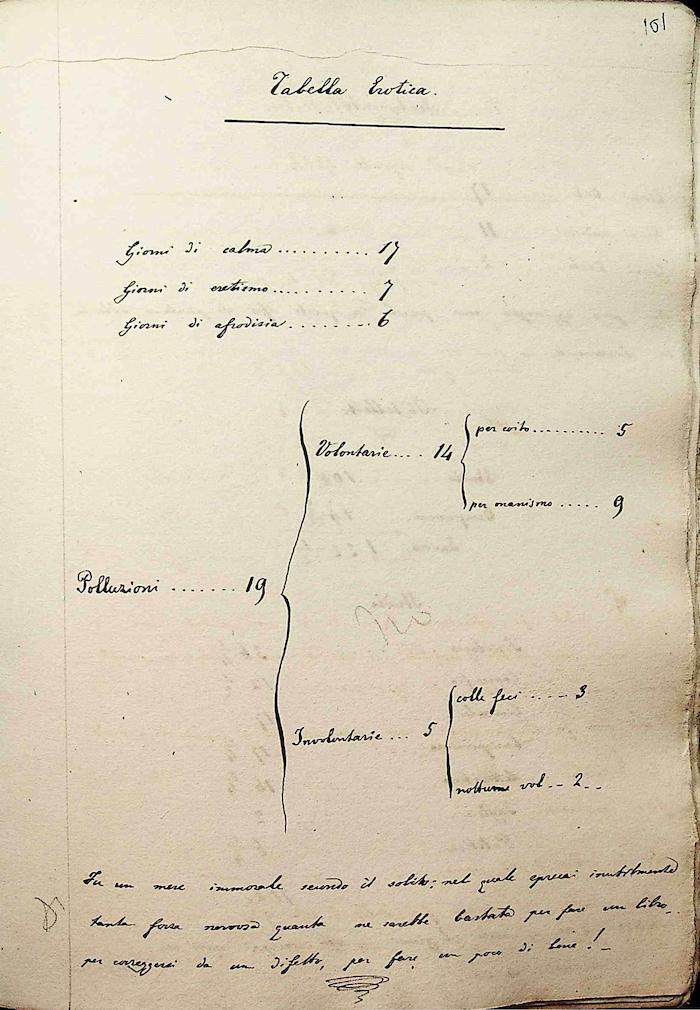 101
Tabella Erotica.
Giorni di calma .......... 17
Giorni di eretismo .......... 7
Giorni di afrodisia ........ 6
per coito .......... 5
Volontarie .... 14
per onanismo ..... 9
Polluzioni ....... 19
colle feci ..... 3
Involontarie ... 5
notturne vol -- 2 --
Fu un mese immorale secondo il solito: nel quale sprecai inutilmente
tanta forza nervosa quanta ne sarebbe bastata per fare un libro,
per correggersi da un difetto, per fare un poco di bene! -